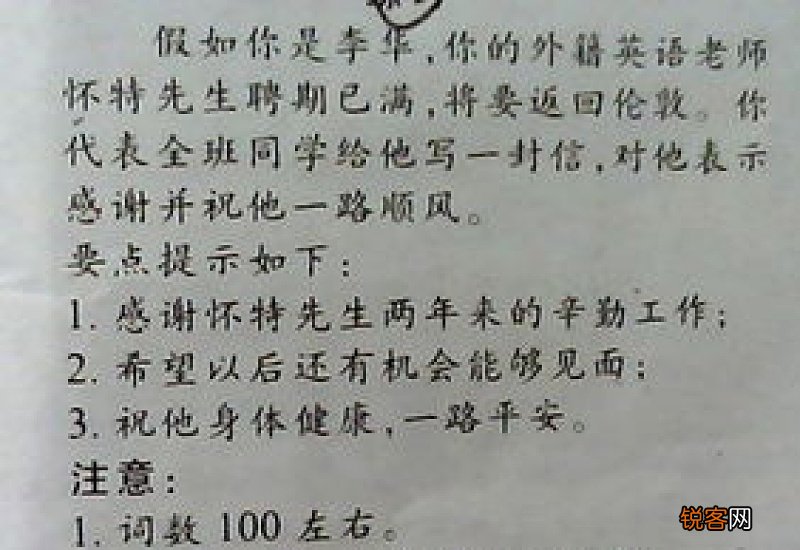 假如你是李华,你的外籍英语老师
怀特先生聘期已满,将要返回伦敦。你
代表全班同学给他写一封信,对他表示
感谢并祝他一路顺风。
要点提示如下:
1. 感谢怀特先生两年来的辛勤工作;
2. 希望以后还有机会能够见面;
3. 祝他身体健康,一路平安。
注意:
1. 词数 100 左右。
锐客网